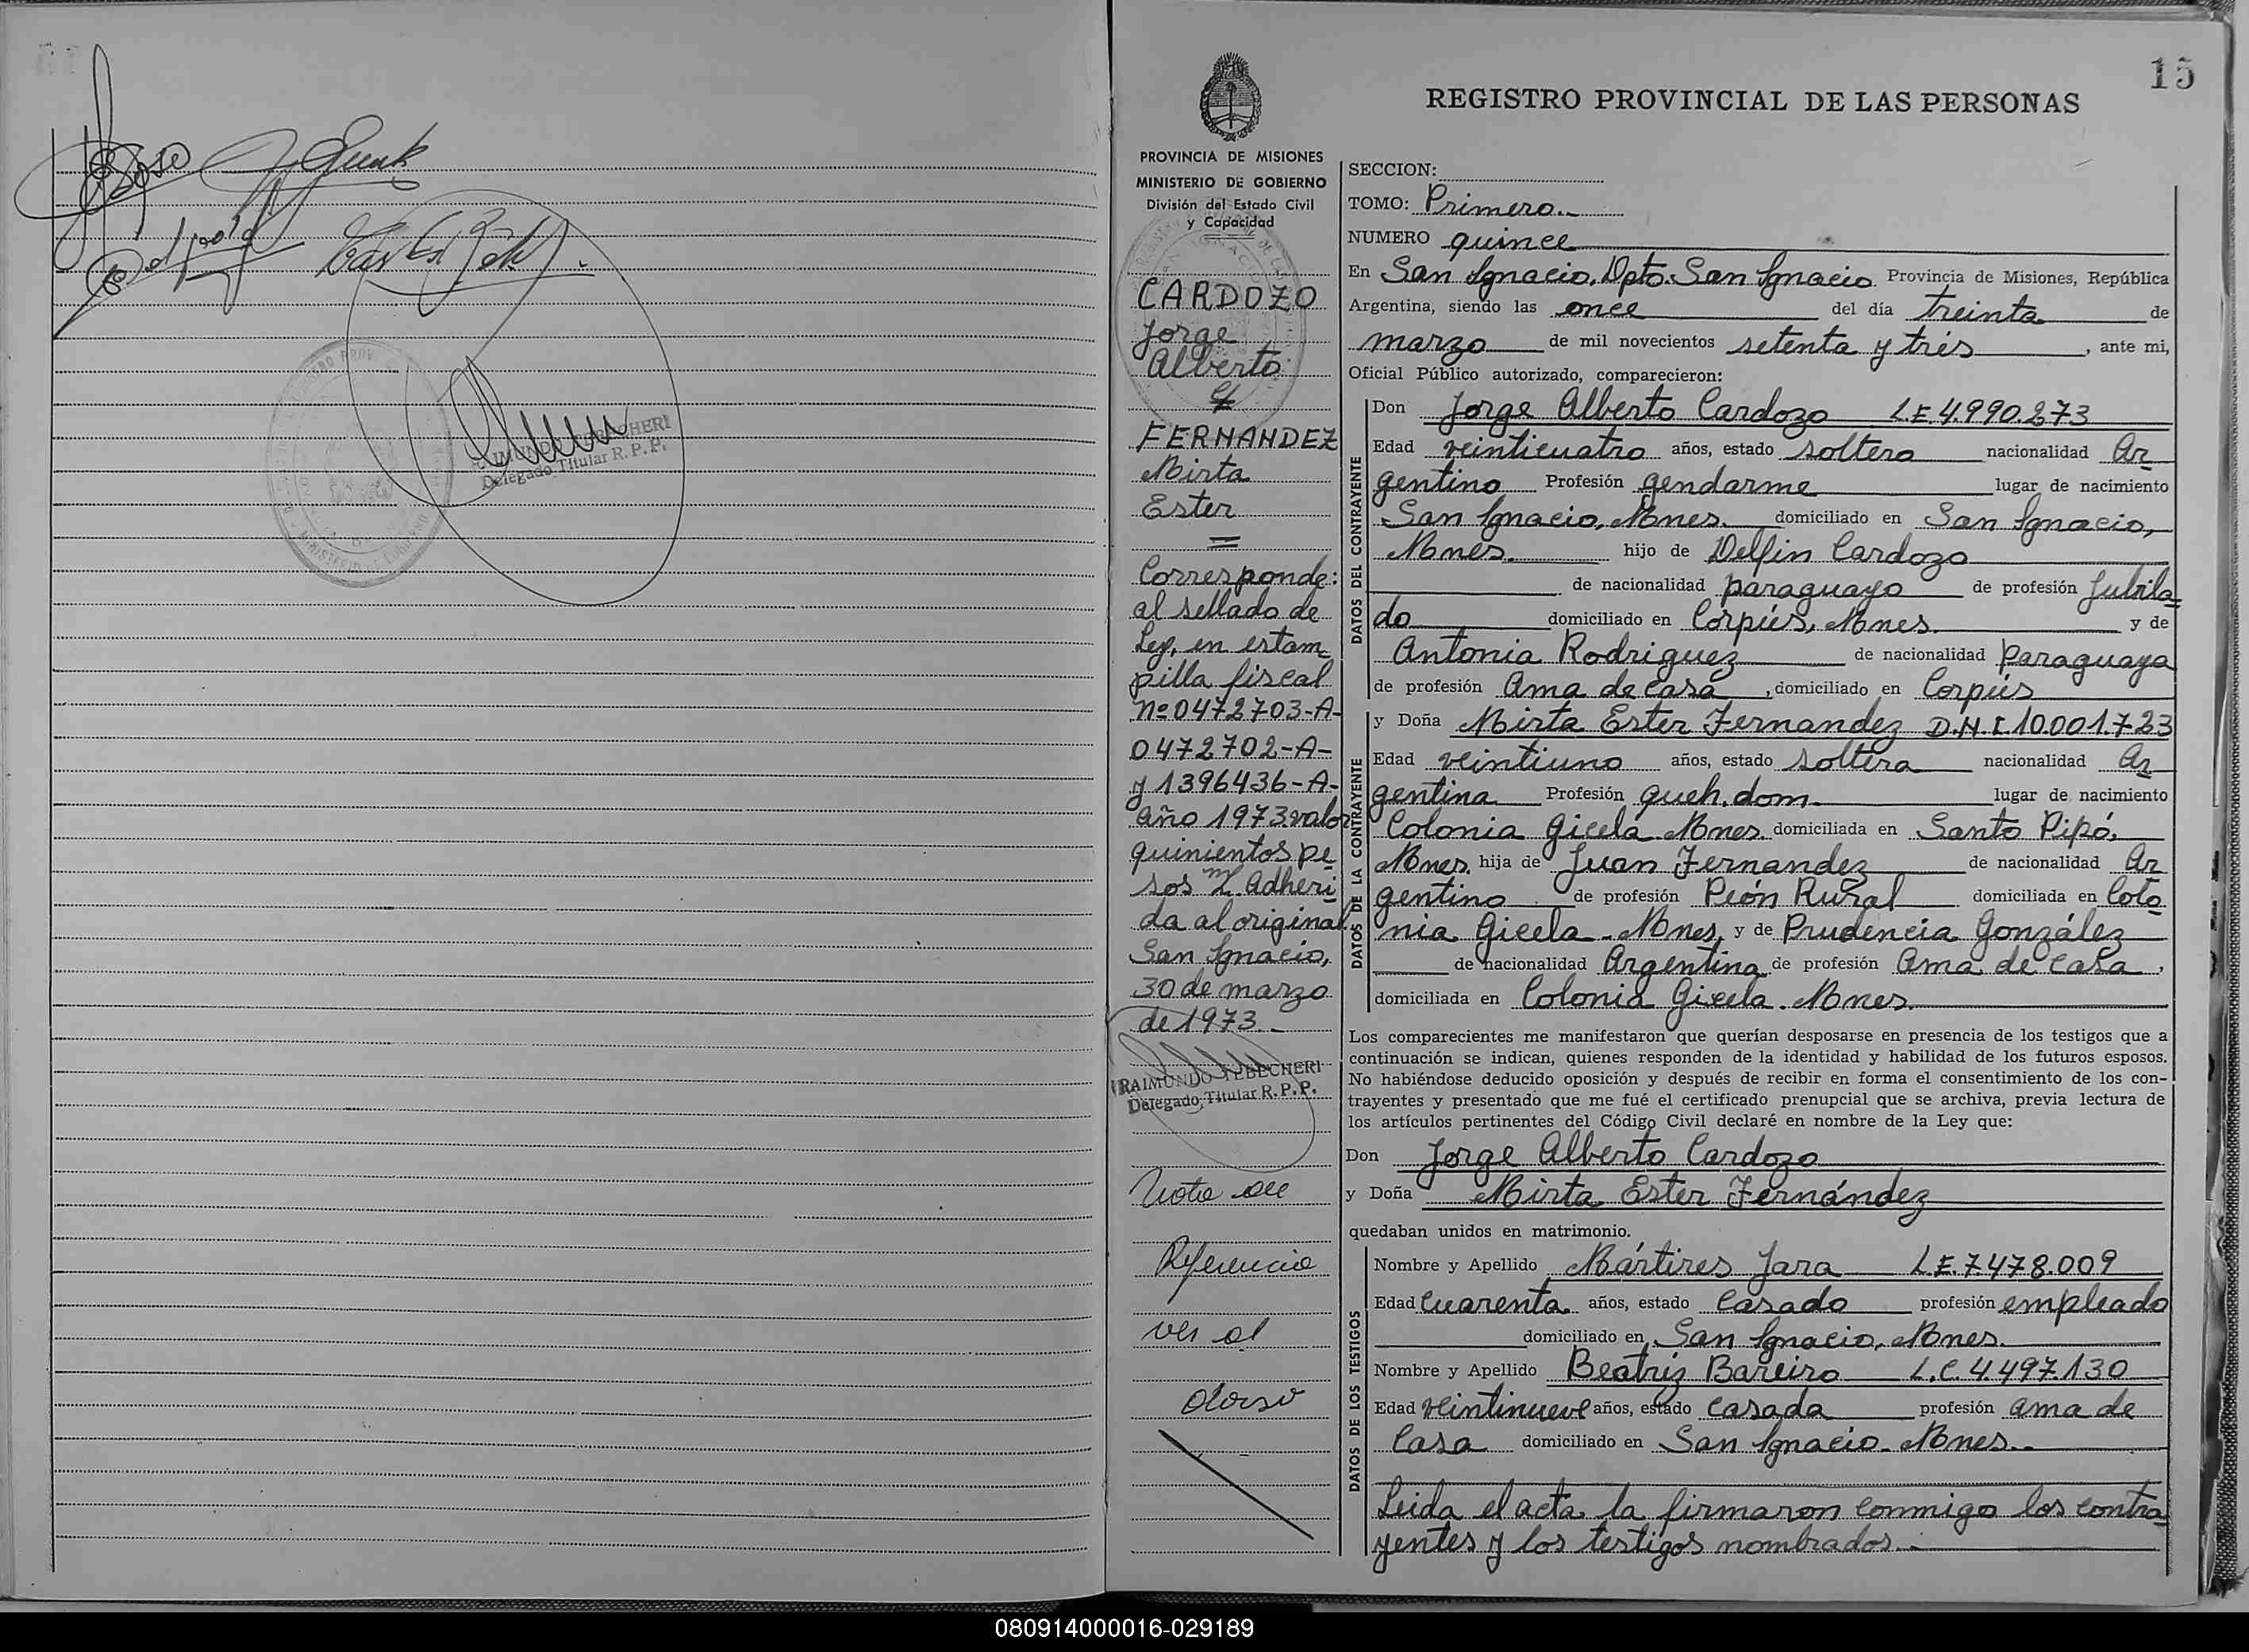 RAIMUNDO TEBECHERI
Delegado Titular R. P. P.
15
REGISTRO PROVINCIAL DE LAS PERSONAS
PROVINCIA DE MISIONES
MINISTERIO DE GOBIERNO
División del Estado Civil
y Capacidad
CARDOZO
Jorge
Alberto
c/
FERNANDEZ
Mirta
Ester
=
Corresponde:
al sellado de
Ley, en estam-
pilla fiscal
Nº 0472703-A-
0472702-A-
y 1396436-A-
año 1973 valor
quinientos pe
sos m/l adheri
da al original
San Ignacio,
30 de marzo
de 1973.-
RAIMUNDO TEBECHERI
Delegado Titular R. P. P.
Nota de
Referencia
ver al
dorso
SECCION:
TOMO: Primero.-
NUMERO quince
En San Ignacio, Dpto. San Ignacio Provincia de Misiones, República
Argentina, siendo las once del día treinta de
marzo de mil novecientos setenta y tres, ante mi,
Oficial Público autorizado, comparecieron:
DATOS DEL CONTRAYENTE
Don Jorge Alberto Cardozo L.E. 4.990.273
Edad veinticuatro años, estado soltero nacionalidad Ar
gentino Profesión gendarme lugar de nacimiento
San Ignacio, Mnes. domiciliado en San Ignacio,
Mnes. hijo de Delfin Cardozo
de nacionalidad paraguayo de profesión Jubila=
do domiciliado en Corpús, Mnes. y de
Antonia Rodriguez de nacionalidad paraguaya
de profesión Ama de casa, domiciliado en Corpús
DATOS DE LA CONTRAYENTE
y Doña Mirta Ester Fernandez D.N.I. 10.001.723
Edad veintiuno años, estado soltera nacionalidad Ar
gentina Profesión queh. dom. lugar de nacimiento
Colonia Gicela Mnes. domiciliada en Santo Pipó,
Mnes. hija de Juan Fernandez de nacionalidad Ar
gentino de profesión Peón Rural domiciliada en Colo
nia Gicela - Mnes, y de Prudencia González
de nacionalidad Argentina de profesión Ama de casa,
domiciliada en Colonia Gicela. Mnes.
Los comparecientes me manifestaron que querían desposarse en presencia de los testigos que a
continuación se indican, quienes responden de la identidad y habilidad de los futuros esposos.
No habiéndose deducido oposición y después de recibir en forma el consentimiento de los con-
trayentes y presentado que me fué el certificado prenupcial que se archiva, previa lectura de
los artículos pertinentes del Código Civil declaré en nombre de la Ley que:
Don Jorge Alberto Cardozo
y Doña Mirta Ester Fernández
quedaban unidos en matrimonio.
DATOS DE LOS TESTIGOS
Nombre y Apellido Mártires Jara L.E. 7.478.009
Edad cuarenta años, estado casado profesión empleado
domiciliado en San Ignacio, Mnes.
Nombre y Apellido Beatriz Bareiro L.C. 4.497.130
Edad veintinueve años, estado casada profesión ama de
casa domiciliado en San Ignacio - Mnes.-
Leida el acta, la firmaron conmigo los contra=
yentes y los testigos nombrados.-
080914000016-029189